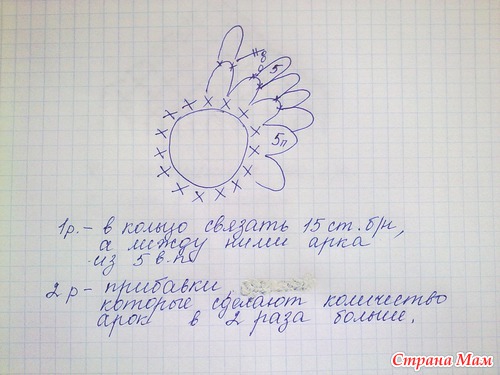 5
5п
1р. – в кольцо связать 15 ст. б/н,
а между ними арка
из 5 в.п.
2 р – прибавки,
которые сделают количество
арок в 2 раза больше.
Страна Мам